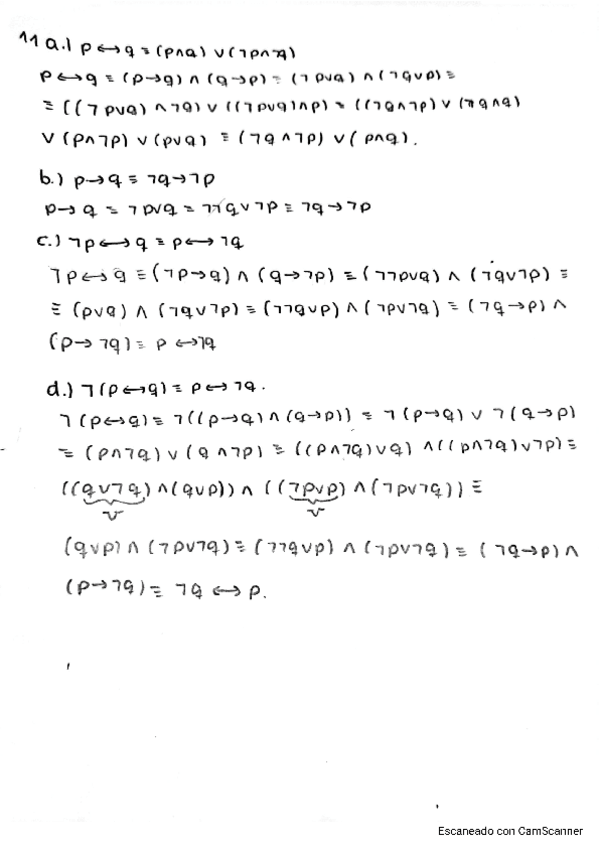 11 a.) p ↔ q ≡ (p∧q) ∨ (¬p∧¬q)
p ↔ q ≡ (p→q) ∧ (q→p) ≡ (¬p∨q) ∧ (¬q∨p) ≡
≡ ((¬p∨q) ∧ ¬q) ∨ ((¬p∨q)∧p) ≡ ((¬q∧¬p) ∨ (¬q∧q)
∨ (p∧¬p) ∨ (p∨q) ≡ (¬q∧¬p) ∨ (p∧q).
b.) p→q ≡ ¬q→¬p
p→q ≡ ¬p∨q ≡ ¬¬q∨¬p ≡ ¬q→¬p
c.) ¬p↔q ≡ p↔¬q
¬p↔q ≡ (¬p→q) ∧ (q→¬p) ≡ (¬¬p∨q) ∧ (¬q∨¬p) ≡
≡ (p∨q) ∧ (¬q∨¬p) ≡ (¬¬q∨p) ∧ (¬p∨¬q) ≡ (¬q→p) ∧
(p→¬q) ≡ p↔¬q
d.) ¬(p↔q) ≡ p↔¬q.
¬(p↔q) ≡ ¬((p→q) ∧ (q→p)) ≡ ¬(p→q) ∨ ¬(q→p)
≡ (p∧¬q) ∨ (q∧¬p) ≡ ((p∧¬q)∨q) ∧ ((p∧¬q)∨¬p) ≡
((q∨¬q) ∧ (q∨p)) ∧ ((¬p∨p) ∧ (¬p∨¬q)) ≡
V V
(q∨p) ∧ (¬p∨¬q) ≡ (¬¬q∨p) ∧ (¬p∨¬q) ≡ (¬q→p) ∧
(p→¬q) ≡ ¬q ↔ p.
Escaneado con CamScanner